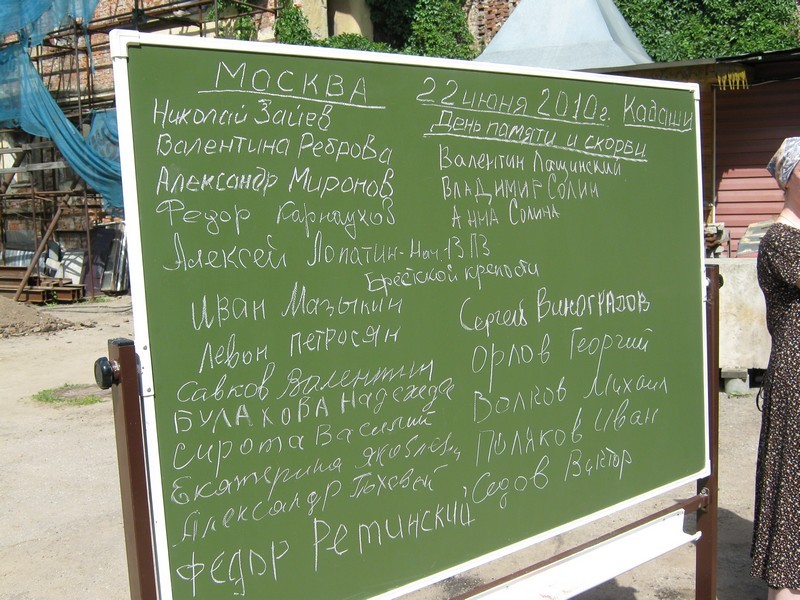 Москва
22 июня 2010 г. Кадаши
День памяти и скорби
Николай Зайцев
Валентина Реброва
Александр Миронов
Федор Карнаухов
Алексей Лопатин - Нач. 13 ПЗ
Брестской крепости
Иван Мазыкин
Левон Петросян
Савков Валентин
БУЛАХОВА Надежда
Сирота Василий
Екатерина
Александр
Федор Ретинский
Валентин Лащинский
Владимир Солин
Анна Солина
Сергей Виноградов
Орлов Георгий
Волков Михаил
Поляков Иван
Седов Виктор